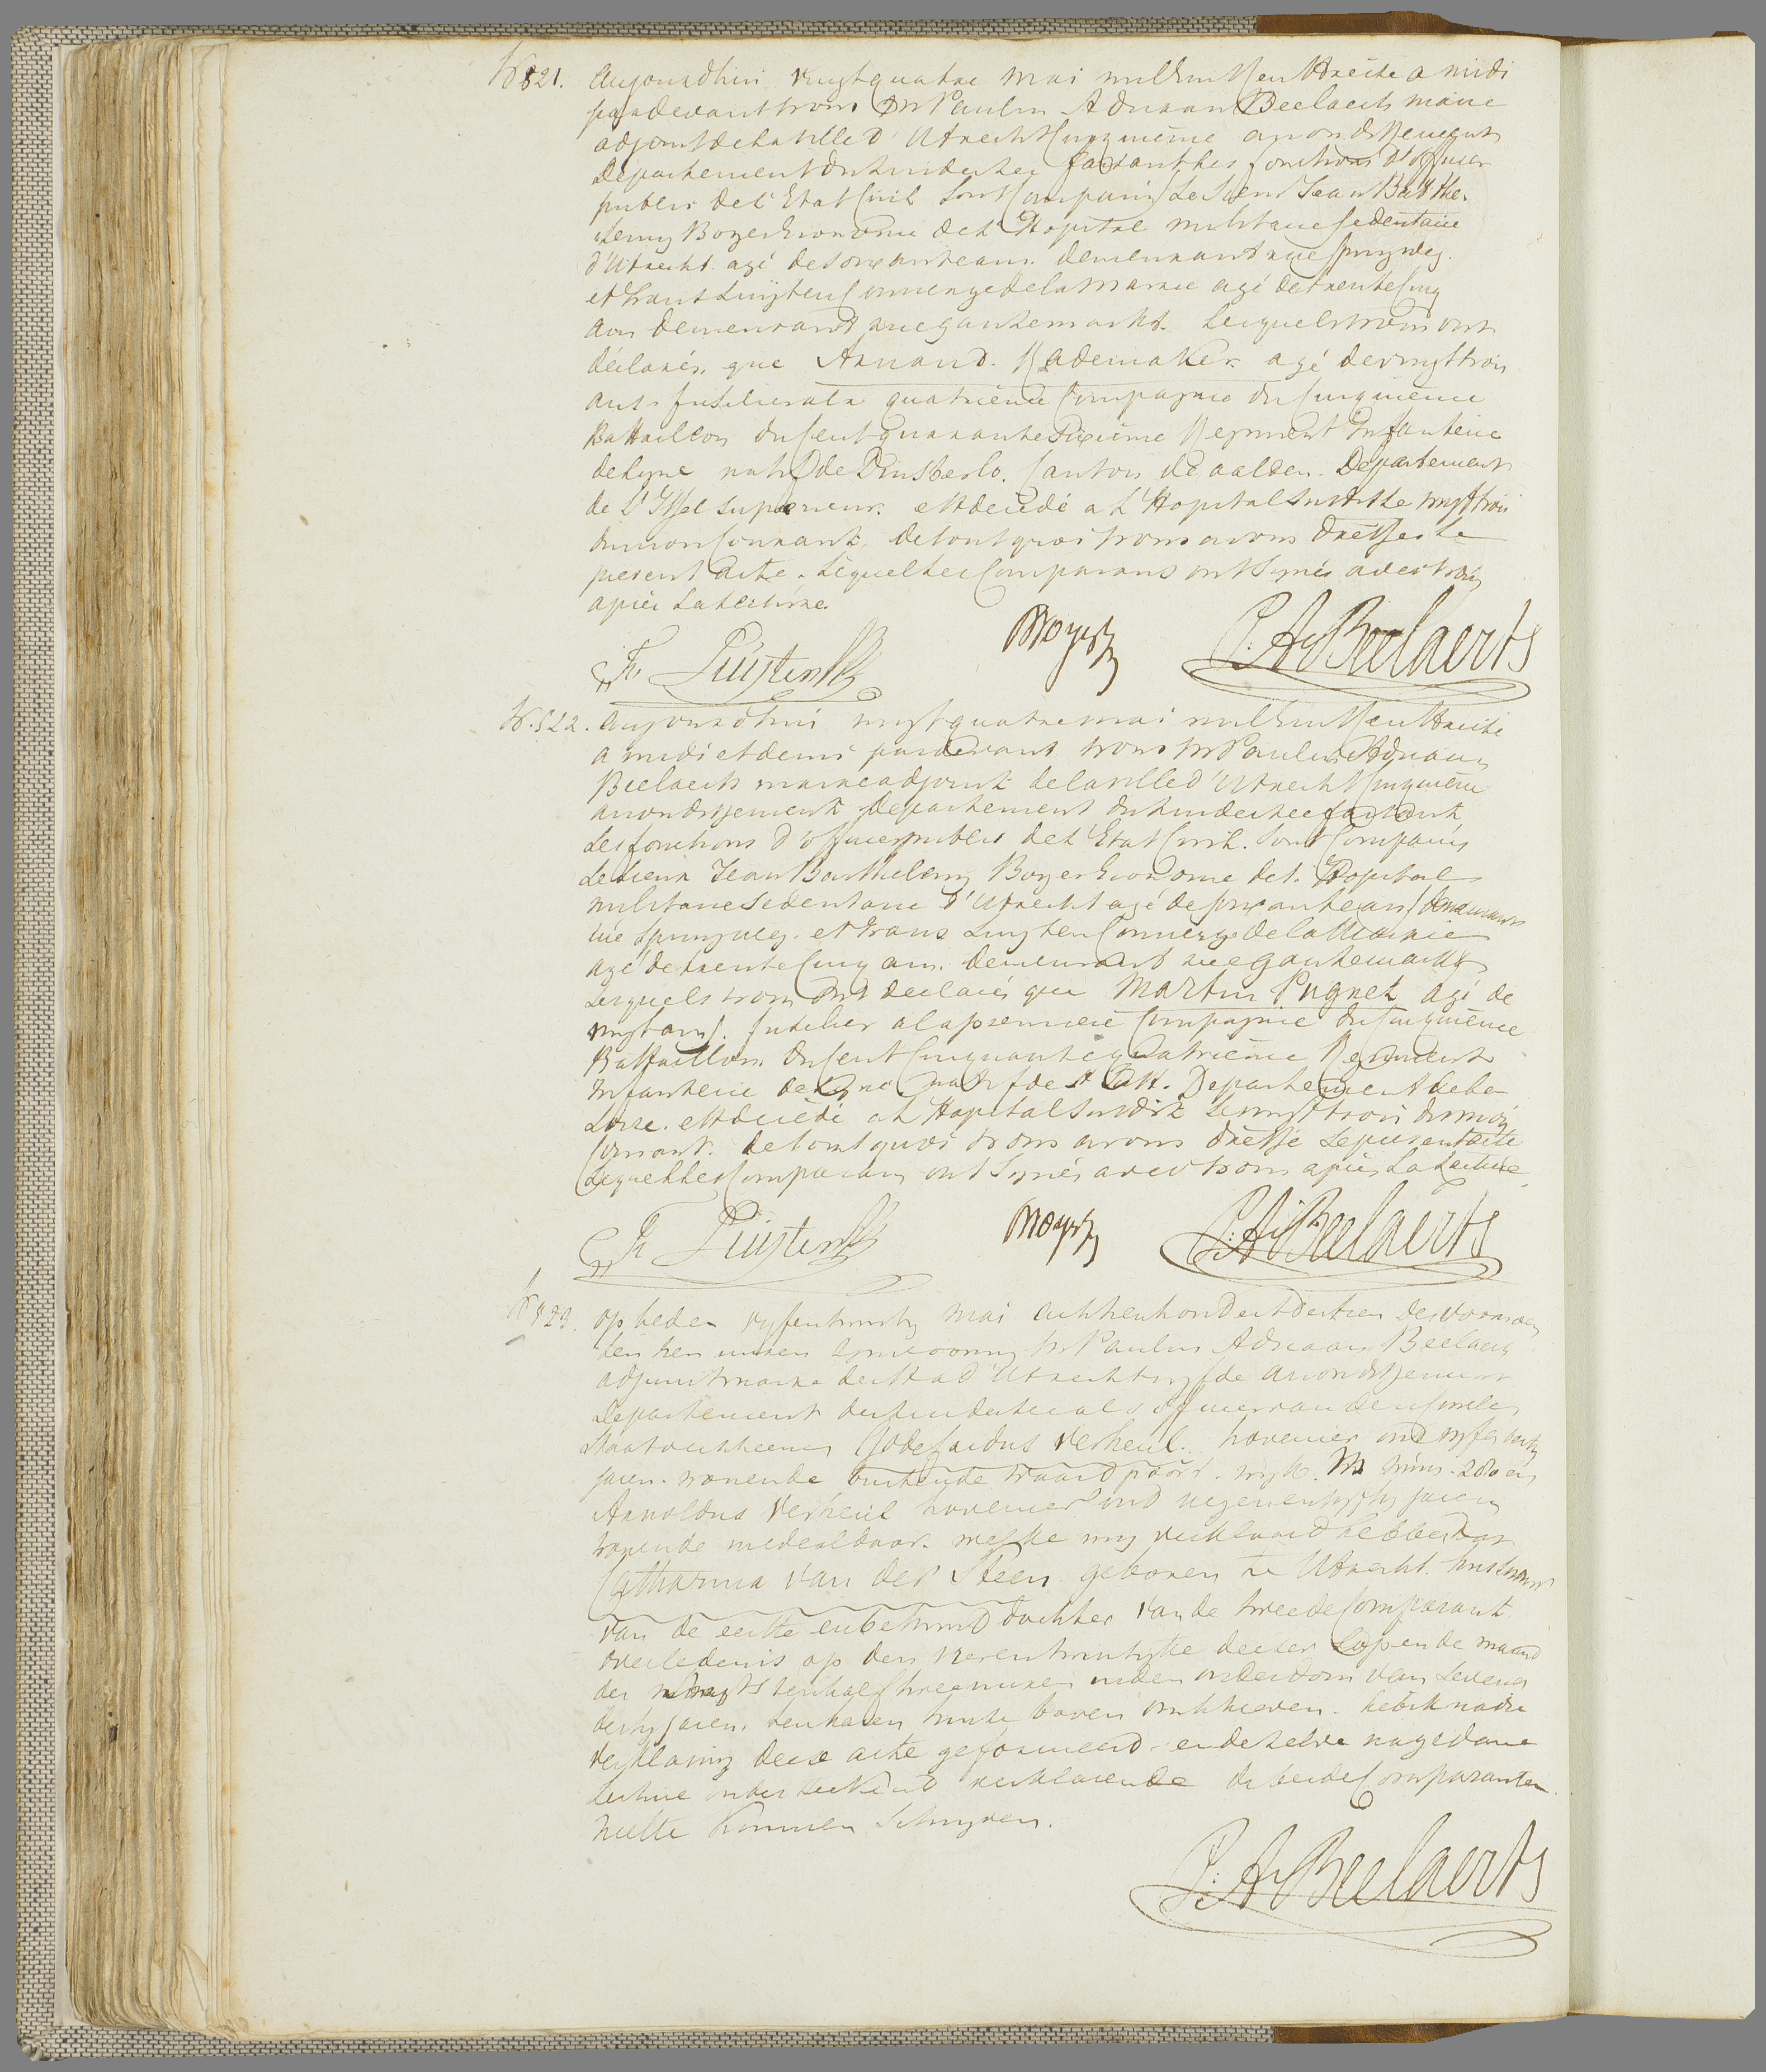 N 821. Aujourdhui vingtquatre mai milhuitcenttreise a midi
pardevant nous Mr Paulus Adriaan Beelaerts maire
adjoint de la ville d'Utrecht Cinquieme arrondissement
Departement du Zuiderzee faisant les fonctions d'officier
public de l'Etat Civil sont Comparus Le Sieur Jean Barthe-
lemy Boyer Econome de l'Hopital militaire sedentaire
d'Utrecht agé de soixante ans demeurant rue Springweg.
et Frans Luijten Concierge de la Mairie agé de trente Cinq
ans demeurant rue gansemarkt. Lesquels nous ont
déclarés que Arnaud. Rademaker agé de vingttrois
ans fusilier a la quatrieme Compagnie du Cinquieme
Battaillon du Cent quarante Sixieme Regiment Infanterie
de ligne natif de Dinsperlo. Canton de aalten. Departement
de L'Issel superieur. est decedé a L'Hopital susdit le vingttrois
du mois Courant. de tout quoi nous avons dressé le
present acte. Lequel les Comparans ont signés avec nous
apres la lecture.
Fr Luijten Boyer P:A:Beelaerts
N. 822. Aujourdhui vingtquatre mai milhuitcenttreise
a midi et demi pardevant nous Mr Paulus Adriaan
Beelaerts maire adjoint de la ville d'Utrecht Cinquieme
arrondissement departement du Zuiderzee faisant
les fonctions d'officier public de l'Etat Civil. sont Comparus
Le Sieur Jean Barthelemy Boyer Econome de l'Hopital
militaire sedentaire d'Utrecht agé de soixante ans demeurant
rue Springweg. et Frans Luijten Concierge de la Mairie
agé de trente Cinq ans. demeurant rue gansemarkt
Lesquels nous ont declarés que Martin Pugnet agé de
vingt ans. fusilier a la premiere Compagnie du Cinquieme
Battaillon du Cent Cinquante quatrieme Regiment
Infanterie de ligne natif de Departement de la
Loire. est decedé a L'Hopital susdit le vingttrois du mois
Courant. de tout quoi nous avons dressé le present acte
Lequel les Comparans ont signés avec nous apres la lecture
Fr Luijten Boyer P:A:Beelaerts
N 823. op heden vyfentwintig mai achttienhonderddertien des voormiddags
ten tien uuren Mr Paulus Adriaan Beelaerts
adjunct maire der Stad Utrecht vyfde arrondissement
Departement der Zuiderzee als officier van den Civilen
Staat verscheenen Godefridus Verheul. hovenier oud vyfendertig
jaren. wonende buiten de waardpoort. wyk. M num. 280 en
Arnoldus Verheul hovenier oud negenenvyftig jaren
wonende mede aldaar. welke my verklaard hebben dat
Catharina van der Steen geboren te Utrecht. huisvrouw
van de eerste en behuwd dochter van de tweede Comparant
overleden is op den vierentwintigste deeser Lopende maand
des nachts ten half twee uuren in den ouderdom van Zeven en
dertig jaren. ten haren huize boven omschreven. heb ik na die
verklaring deese acte geformeerd. en dezelve na gedane
lecture onderteekend verklarende de beide Comparanten
niette kunnen Schryven.
P:A:Beelaerts